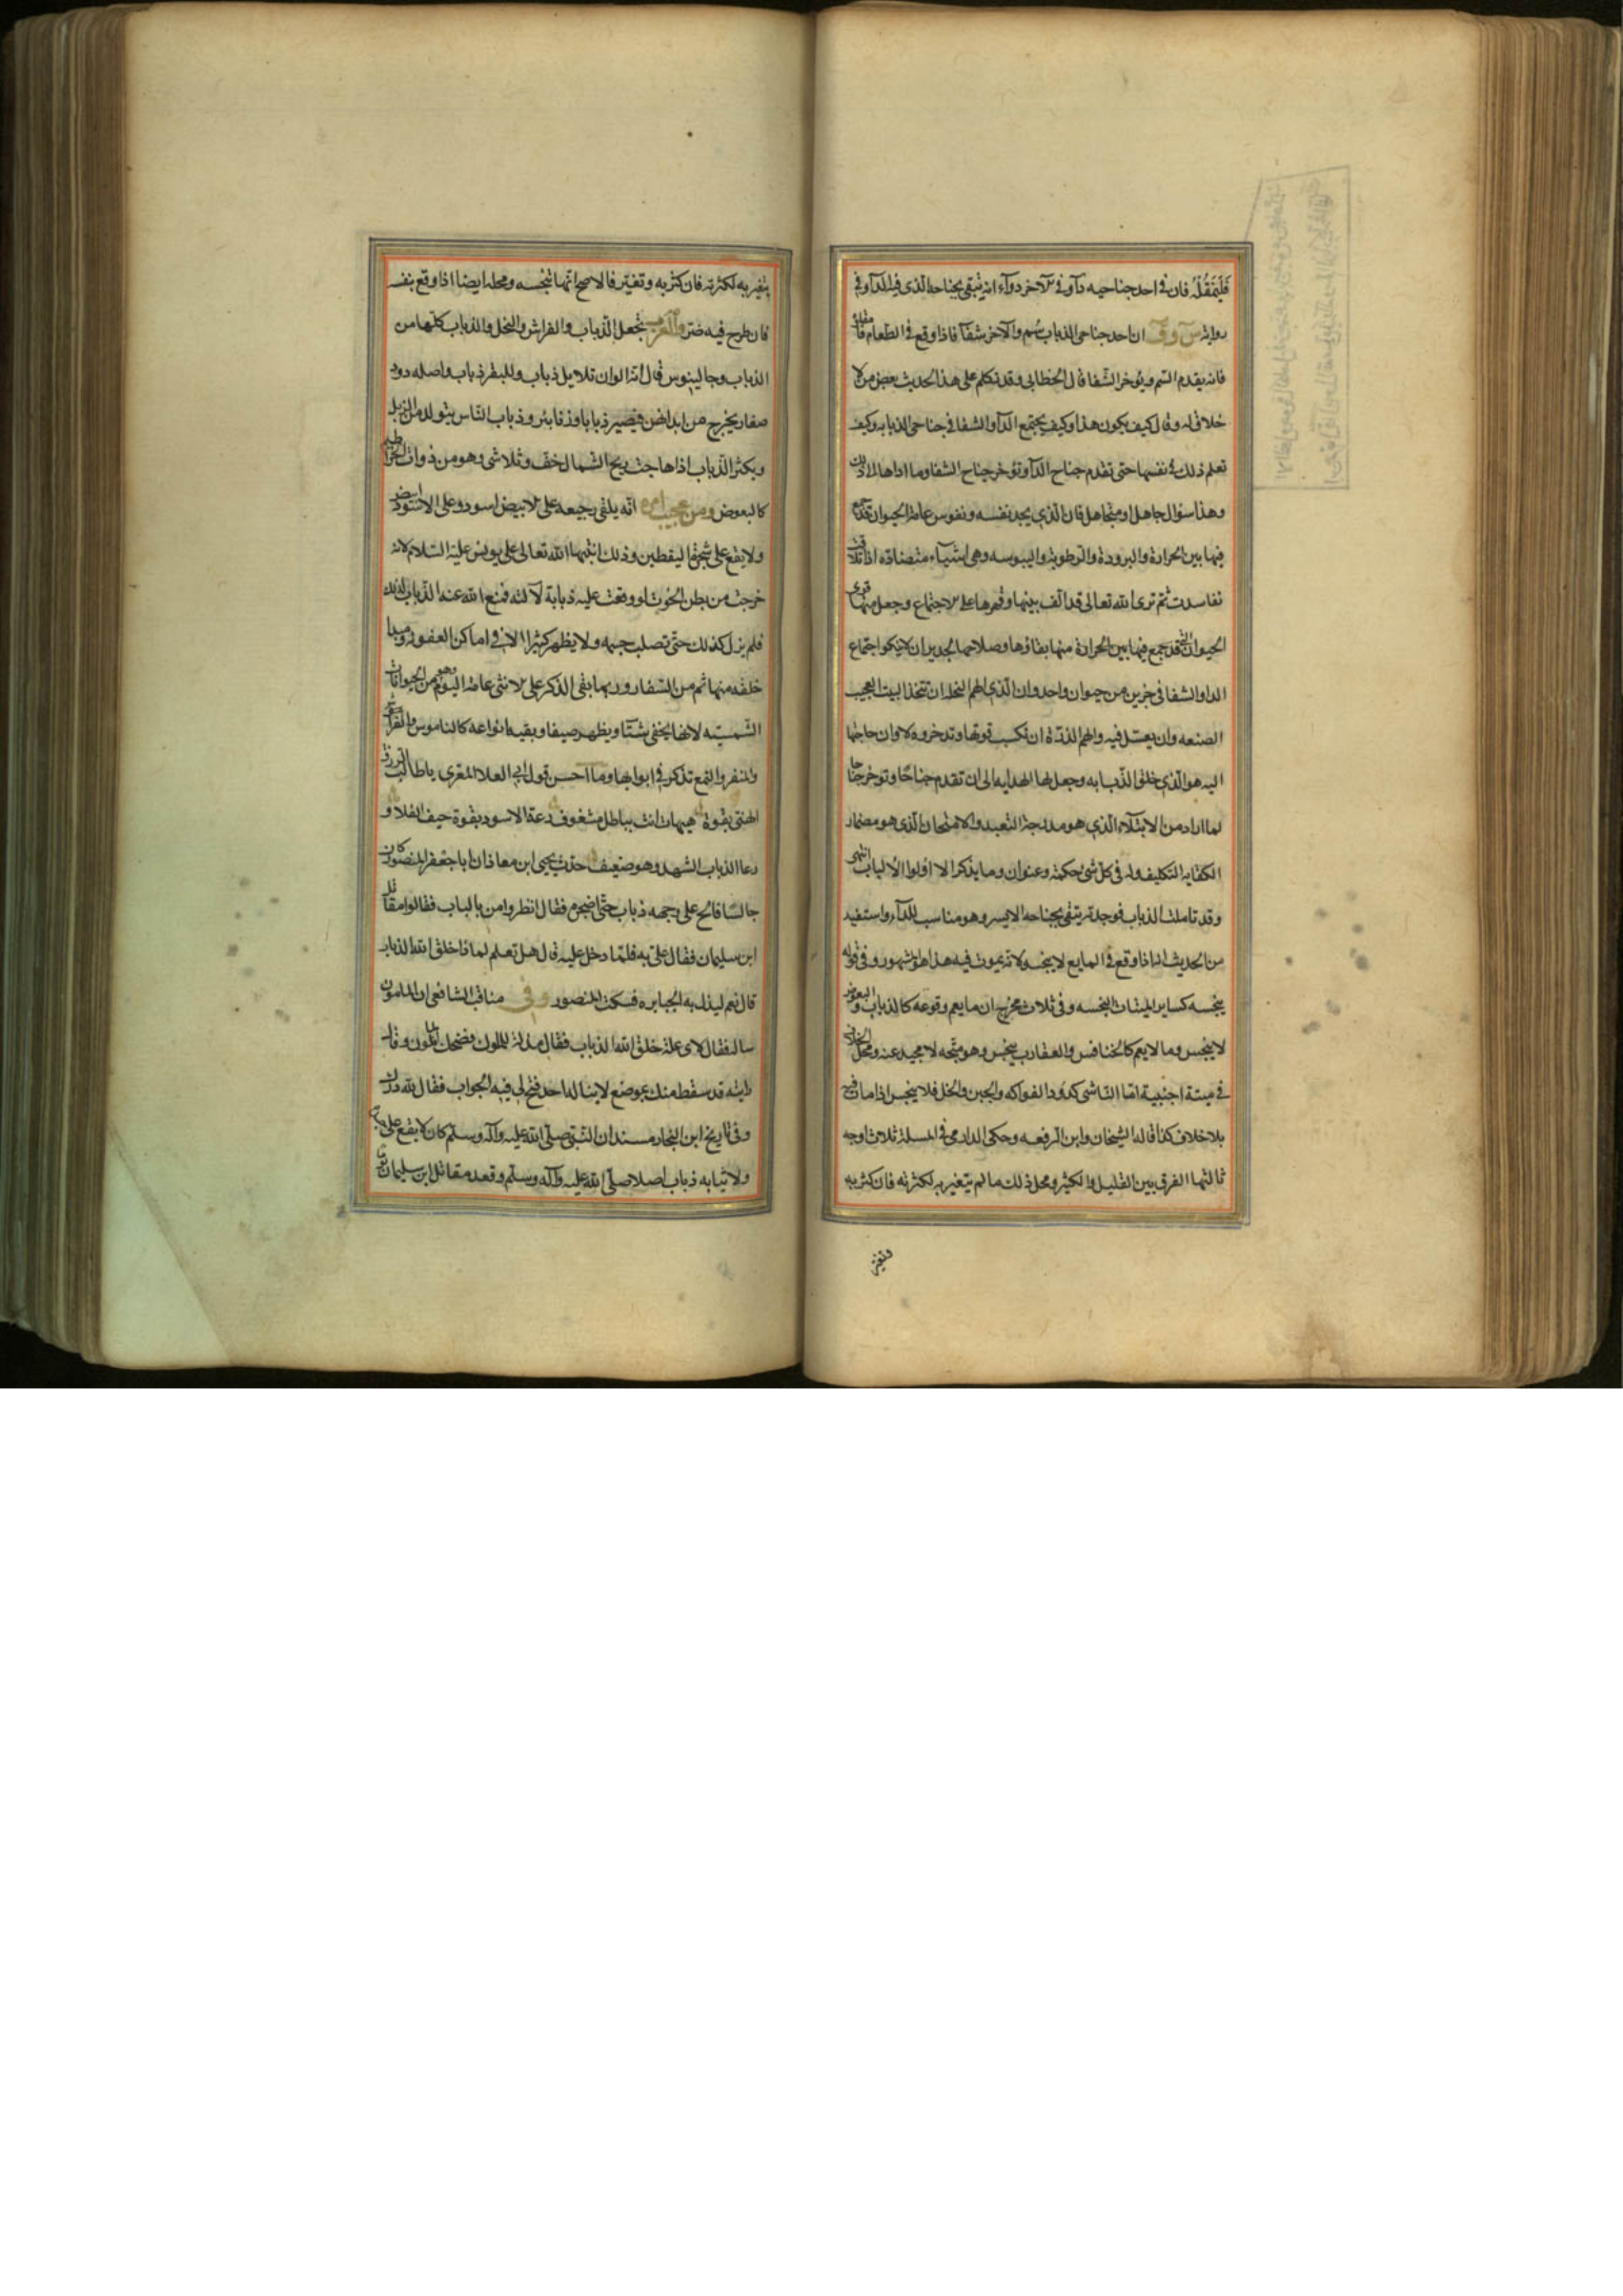 فَلْيَمْقُلْهُ فان في احد جناحيه دآء وفي الآخر دوآء انه يتقي بجناحه الذي فيه الدآ وفي
رواية س و ق ان احد جناحي الذباب سُم والآخر شفآ فاذا وقع في الطعام فامقلوه
فانه يقدم السم ويؤخر الشفا قال الخطابي وقد تكلم على هذا الحديث بعض من لا
خلاق له وقال كيف يكون هذا وكيف يجتمع الدآ والشفا في جناحي الذبابه وكيف
تعلم ذلك في نفسها حتى تقدم جناح الدآ وتؤخر جناح الشفا وما اداها الى ذلك
وهذا سؤال جاهل او متجاهل فان الذي يجد نفسه ونفوس عامة الحيوان قد جمع
فيها بين الحرارة والبرودة والرطوبة واليبوسه وهي اشيآء متضادة اذا تلاقت
تفاسدت ثم ترى الله تعالى قد الف بينها وقهرها على الاجتماع وجعل منها قوى
الحيوان التي قد جمع فيها بين الحرارة منها بقاؤها وصلاحها لجدير ان لا ينكر اجتماع
الدا والشفا في جزين من حيوان واحد وان الذي الهم النحله ان تتخذ البيت العجيب
الصنعه وان يعسل فيه والهم الذرة ان تكسب قوتها وتدخره لاوان حاجتها
اليه هو الذي خلق الذبابه وجعل لها الهدايه الى ان تقدم جناحًا وتؤخر جناحا
لما اراد من الابتلاء الذي هو مدرجة التعبد والامتحان الذي هو مضمار
التكليف وله في كل شئ حكمة وعنوان وما يذكر الا اولوا الالباب انتهى
وقد تاملت الذباب فوجدته يتقي بجناحه الايسر وهو مناسب للدآء واستفيد
من الحديث انه اذا وقع في المايع لا ينجسه لانه يموت فيه هذا هو المشهور وفي قوله
ينجسه كساير الميتات النجسه وفي ثالث مخرج ان ما يعم وقوعه كالذباب والبعوض
لا ينجس وما لا يعم كالخنافس والعقارب ينجس وهو متجه لا محيد عنه ومحل الخلاف
في ميتة اجنبية اما الناشى كدود الفواكه والجبن والخل فلا ينجس اذا مات فيه
بلا خلاف كذا قاله الشيخان وابن الرفعه وحكى الدارمي في المسلة ثلاث اوجه
ثالثها الفرق بين القليل والكثير ومحل ذلك ما لم يتغير به لكثرته فان كثر به
وتغير
يتغير به لكثرته فان كثر به وتغير فالاصح انها تنجسه ومحله ايضا اذا وقع بنفسه
فان طرح فيه ضر والعرب تجعل الذباب والفراش والنحل والذباب كلها من
الذباب وجالينوس قال انه الوان فلابل ذباب وللبقر ذباب واصله دود
صغار يخرج من ابدانهن فيصير ذبابا وزنابير وذباب الناس يتولد من الزبل
ويكثر الذباب اذا هاجت ريح الشمال خف وتلاشى وهو من ذوات الخراطيم
كالبعوض ومن عجيب امره انه يلقي رجيعه على الابيض اسود وعلى الاسود ابيض
ولا يقع على شجرة اليقطين وذلك انبتها الله تعالى على يونس عليه السلام لانه
خرجت من بطن الحوت لو وقعت عليه ذبابة لآلمته فمنع الله عنه الذباب لذلك
فلم يزل كذلك حتى تصلب جسمه ولا يظهر كثيرا الا في اماكن العفونه ومبدا
خلقه منها ثم من السفاد وربما بقي الذكر على الانثى عامة اليوم وهو من الحيوانات
الشمسيه لانها يخفى شتآ ويظهر صيفا وبقيه انواعه كالناموس والفراش
والنغر والقمع تذكر في ابوابها وما احسن قول ابي العلا المعري ياطالب الرزق
الهني بقوة هيهات انت بباطل مشغوف رعة الاسود بقوة جيف الفلا و
رعا الذباب الشهد وهو ضعيف حدث يحيى ابن معاذ ان ابا جعفر المنصور كان
جالسا فالح على وجهه ذباب حتى اضجره فقال انظروا من بالباب فقالوا مقاتل
ابن سليمان فقال علي به فلما دخل عليه قال هل تعلم لما ذا خلق الله الذباب
قال نعم ليذل به الجبابره فسكت المنصور وفي مناقب الشافعي ان المامون
ساله فقال لاى علة خلق الله الذباب فقال مذلة للملوك فضحك المامون وقال
رايته قد سقط منك بموضع لا يناله احد فتح لي فيه الجواب فقال لله درك
وفي تاريخ ابن النجار مسند ان النبي صلى الله عليه وآله وسلم كان لا يقع على
ولا ثيابه ذباب اصلا صلى الله عليه وآله وسلم وقعد مقاتل ابن سليمان